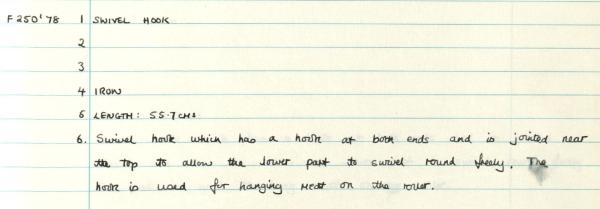 F250'78 1 SWIVEL HOOK
2
3
4 IRON
5 LENGTH: 55.7CMS
6. Swivel hook which has a hook at both ends and is jointed near
the top to allow the lower part to swivel round freely. The
hook is used for hanging meat on the roller.